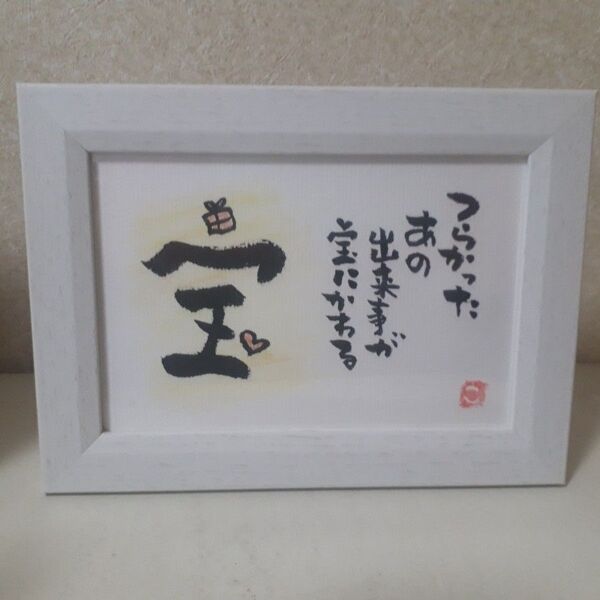 つらかった
あの
出来事が
宝にかわる
宝